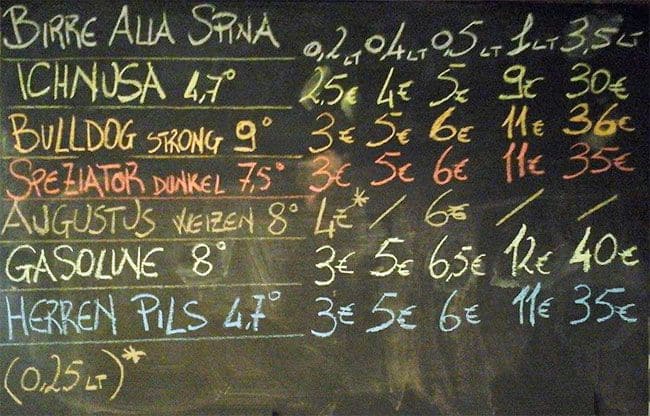 BIRRE ALLA SPINA 0,2 LT 0,4 LT 0,5 LT 1 LT 3,5 LT
ICHNUSA 4,7° 2,5€ 4€ 5€ 9€ 30€
BULLDOG STRONG 9° 3€ 5€ 6€ 11€ 36€
SPEZIATOR DUNKEL 7,5° 3€ 5€ 6€ 11€ 35€
AUGUSTUS WEIZEN 8° 4€* / 6€ / /
GASOLINE 8° 3€ 5€ 6,5€ 12€ 40€
HERREN PILS 4,7° 3€ 5€ 6€ 11€ 35€
(0,25 LT)*